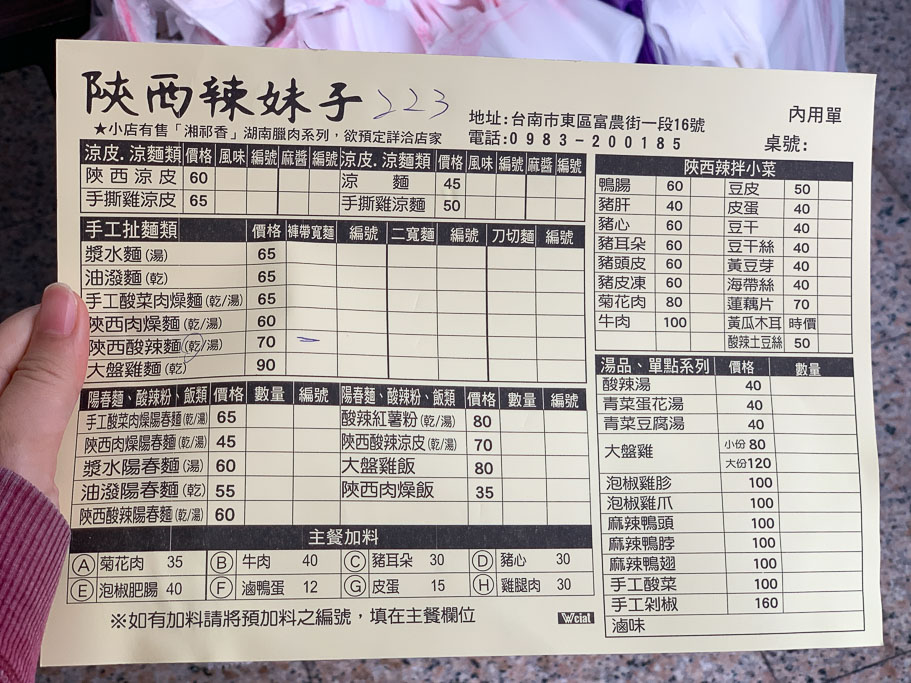 陝西辣妹子 223
★小店有售「湘祁香」湖南臘肉系列，欲預定詳洽店家
地址:台南市東區富農街一段16號
電話:0983-200185
內用單
桌號:
涼皮.涼麵類 價格 風味 編號 麻醬 編號 涼皮.涼麵類 價格 風味 編號 麻醬 編號
陝西涼皮 60 涼麵 45
手撕雞涼皮 65 手撕雞涼麵 50
手工扯麵類 價格 褲帶寬麵 編號 二寬麵 編號 刀切麵 編號
漿水麵(湯) 65
油潑麵(乾) 65
手工酸菜肉燥麵(乾/湯) 65
陝西肉燥麵(乾/湯) 60
陝西酸辣麵(乾/湯) 70
大盤雞麵(乾) 90
陽春麵、酸辣粉、飯類 價格 數量 編號 陽春麵、酸辣粉、飯類 價格 數量 編號
手工酸菜肉燥陽春麵(乾/湯) 65 酸辣紅薯粉(乾/湯) 80
陝西肉燥陽春麵(乾/湯) 45 陝西酸辣涼皮(乾/湯) 70
漿水陽春麵(湯) 60 大盤雞飯 80
油潑陽春麵(乾) 55 陝西肉燥飯 35
陝西酸辣陽春麵(乾/湯) 60
主餐加料
A 菊花肉 35 B 牛肉 40 C 豬耳朵 30 D 豬心 30
E 泡椒肥腸 40 F 滷鴨蛋 12 G 皮蛋 15 H 雞腿肉 30
※如有加料請將預加料之編號，填在主餐欄位
陝西辣拌小菜
鴨腸 60 豆皮 50
豬肝 40 皮蛋 40
豬心 60 豆干 40
豬耳朵 60 豆干絲 40
豬頭皮 60 黃豆芽 40
豬皮凍 60 海帶絲 40
菊花肉 80 蓮藕片 70
牛肉 100 黃瓜木耳 時價
酸辣土豆絲 50
湯品、單點系列 價格 數量
酸辣湯 40
青菜蛋花湯 40
青菜豆腐湯 40
大盤雞 小份80
大份120
泡椒雞胗 100
泡椒雞爪 100
麻辣鴨頭 100
麻辣鴨脖 100
麻辣鴨翅 100
手工酸菜 100
手工剁椒 160
滷味